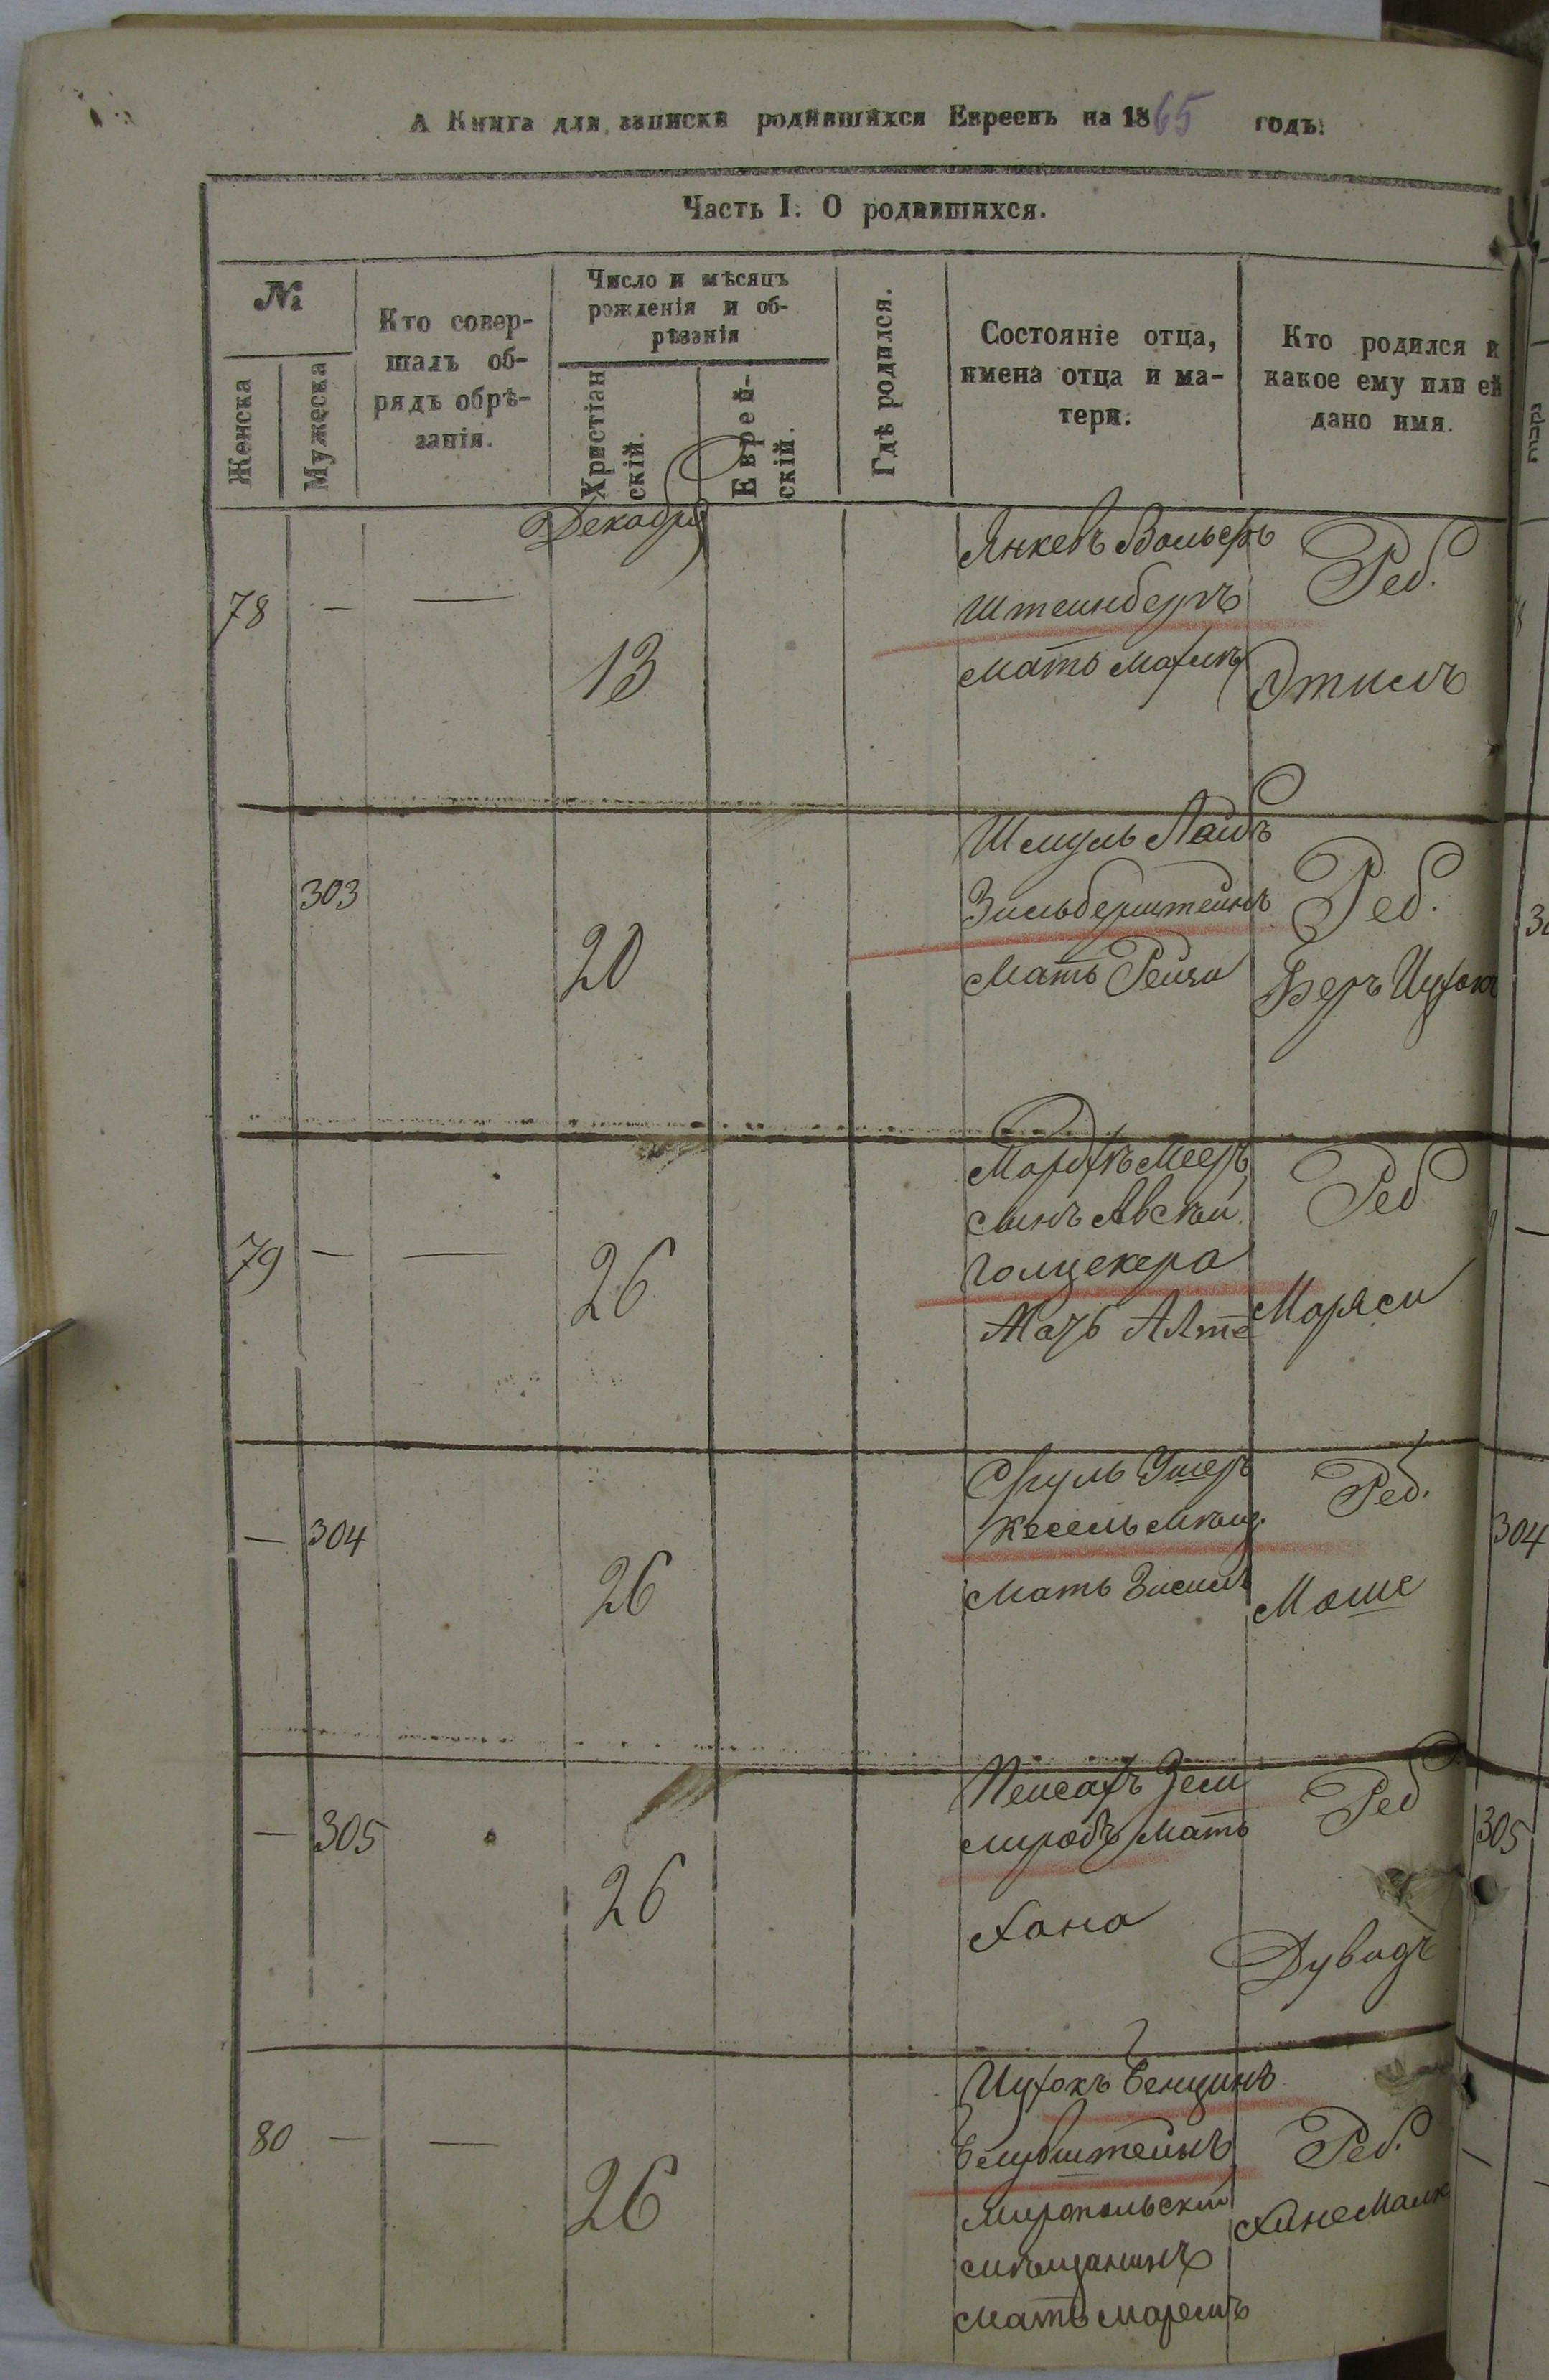 А Книга для записки родившихся Евреевъ на 1865 годъ.
Часть I. О родившихся.
№
Женска
Мужеска
Кто совер-
шалъ об-
рядъ обрѣ-
занія.
Число и мѣсяцъ
рожденія и об-
рѣзанія
Христіан
скій.
Еврей-
скій.
Гдѣ родился.
Состояніе отца,
имена отца и ма-
тери.
Кто родился и
какое ему или ей
дано имя.
Декабря
78 — —
13
Янкевъ Вольфъ
Штеинбергъ
мать
Реб.
Этиль
303
20
Шмуль Лейбъ
Зильберштейнъ
Мать Рейзи
Реб.
Беръ Ицхокъ
79 — —
26
Мордхъ Мееръ
сынъ
Голцекера
Мать Алте
Реб
Маряси
— 304
26
Сруль Ушеръ
Кесельман.
Мать Зисиль
Реб.
Моше
304
— 305
26
Пейсахъ Зели
Мать
Хана
Реб
Дувидъ
305
80 — —
26
Ицхокъ Бенцинъ
Миропольскій
мѣщанинъ
Мать
Реб.
Хине Малк